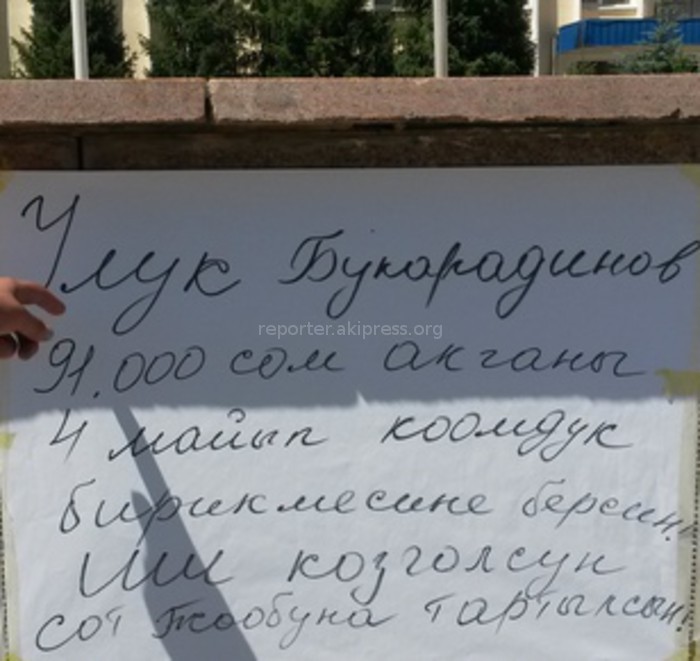 Улук Букарадинов
reporter.akipress.org
91.000 сом акганы
4 майып коомдук
бирикмесине берсин!
ИИ козголсун
сот жообуна тартылсын!